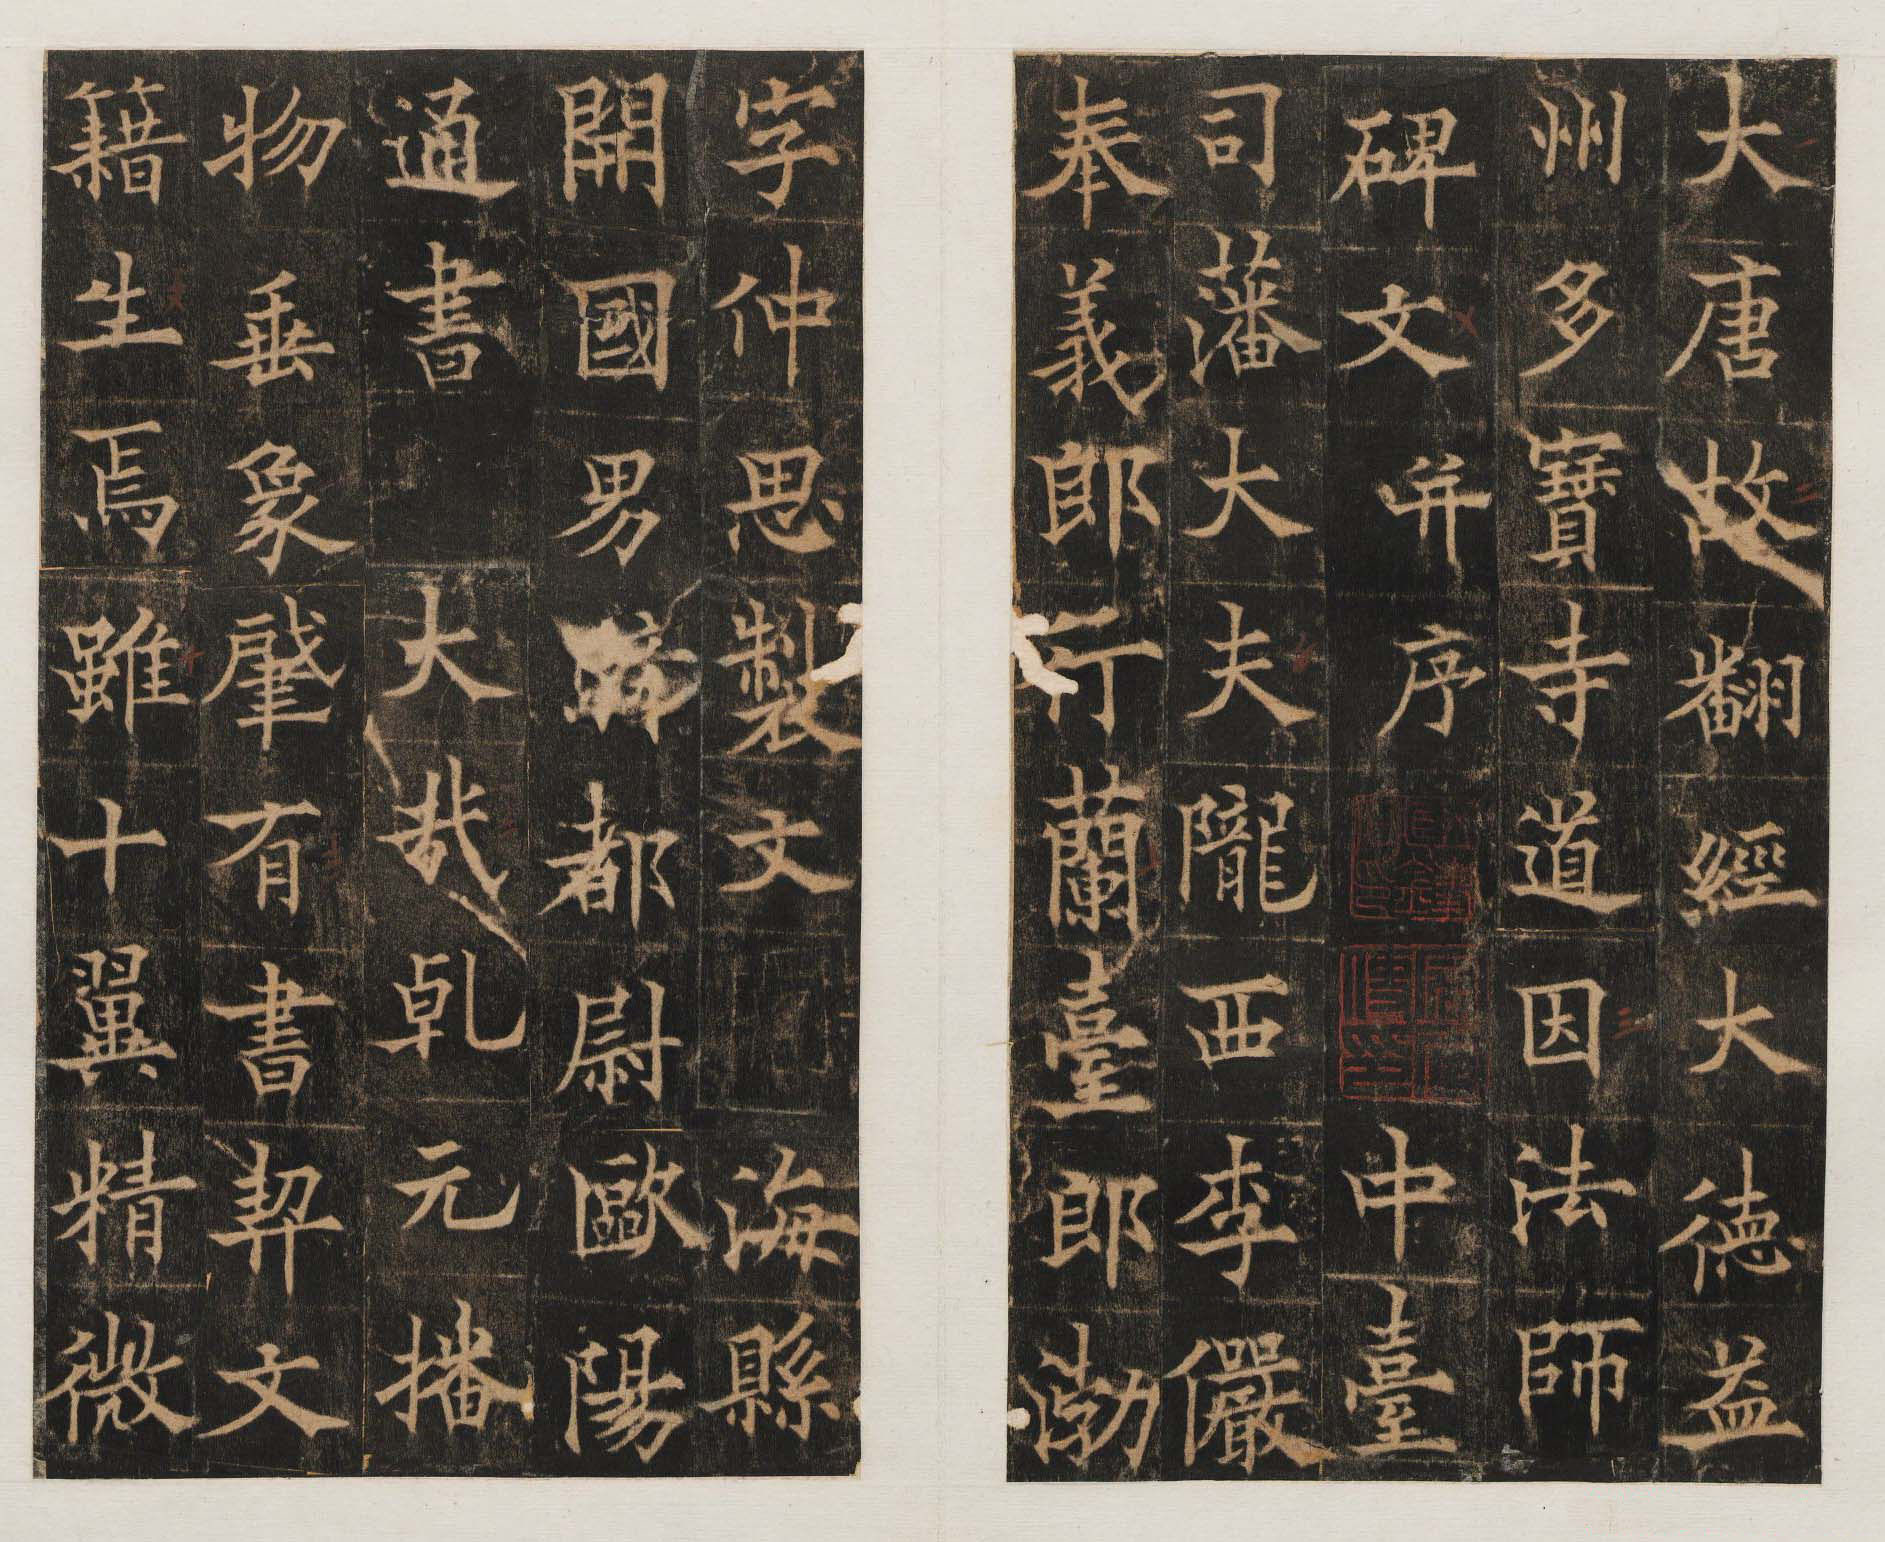 大唐故翻經大德益
州多寶寺道因法師
碑文并序中臺
司藩大夫隴西李儼
奉義郎行蘭臺郎渤
字仲思製文海縣
開國男騎都尉歐陽
通書大哉乹元播
物垂象肇有書契文
籍生焉雖十翼精微